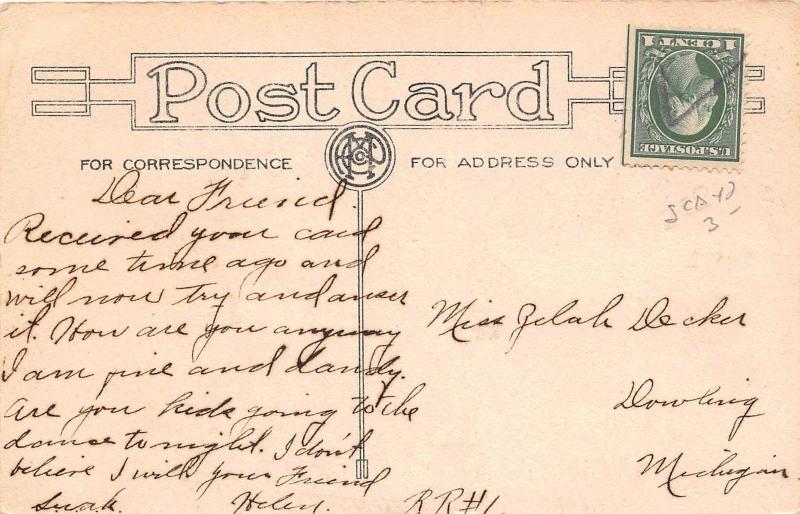 Post Card
1 CENT 1
U.S. POSTAGE
FOR CORRESPONDENCE
FOR ADDRESS ONLY
Dear Friend.
Received your card
some time ago and
will now try and anser
it. How are you anyway
I am fine and dandy.
Are you kids going to the
dance to night. I don't
believe I will your Friend
Helen.
Miss Zelah Decker
Dowling
Michigan
RR#1
3